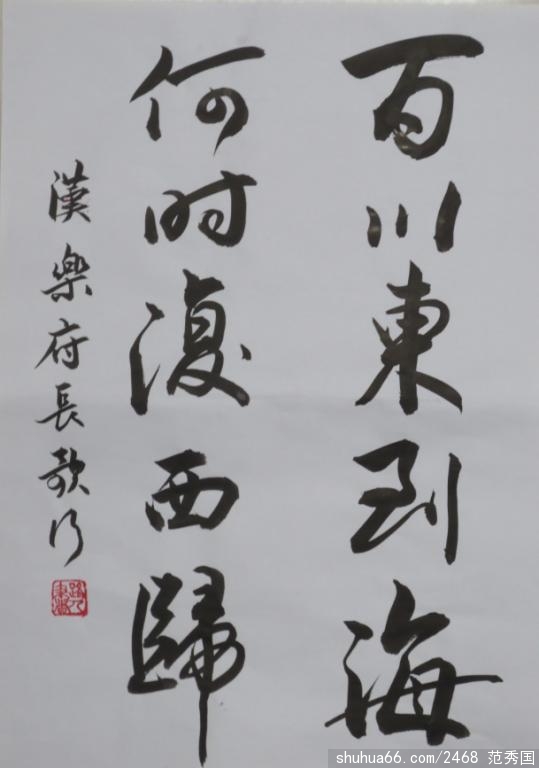 百川東到海
何时復西歸
漢樂府長歌行
shuhua66.com/2468 范秀国